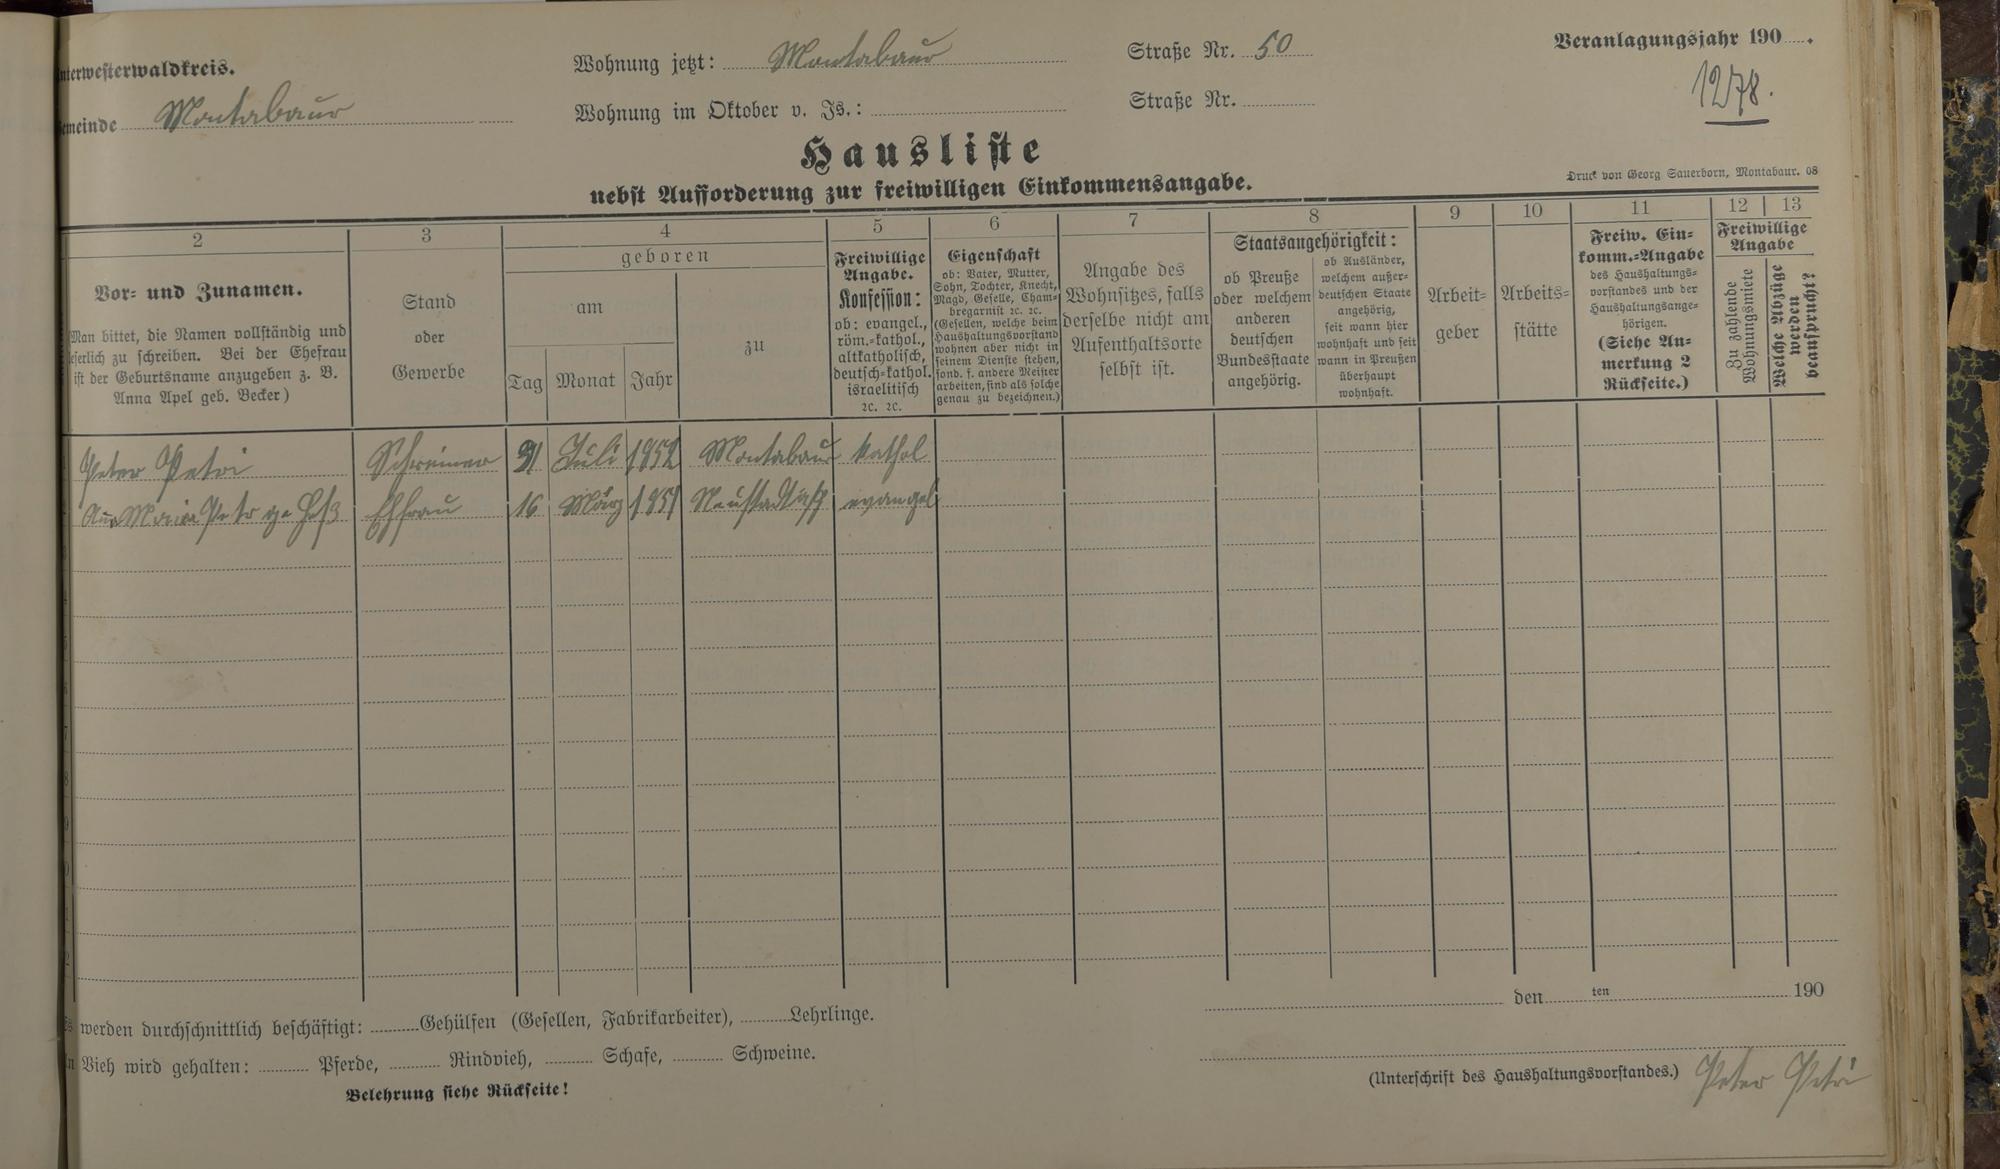 nterwesterwaldkreis.
emeinde Montabaur
Wohnung jetzt: Montabaur Straße Nr. 50
Wohnung im Oktober v. Js.: Straße Nr.
Veranlagungsjahr 190 .
1278.
Hausliste
nebst Aufforderung zur freiwilligen Einkommensangabe.
Druck von Georg Sauerborn, Montabaur. 08
2
Vor- und Zunamen.
Man bittet, die Namen vollständig und
eserlich zu schreiben. Bei der Ehefrau
ist der Geburtsname anzugeben z. B.
Anna Apel geb. Becker)
3
Stand
oder
Gewerbe
4
geboren
am
Tag Monat Jahr
zu
5
Freiwillige
Angabe.
Konfession:
ob: evangel.,
röm.-kathol.,
altkatholisch,
deutsch-kathol.
israelitisch
2c. 2c.
6
Eigenschaft
ob: Vater, Mutter,
Sohn, Tochter, Knecht,
Magd, Geselle, Cham-
bregarnist 2c. 2c.
(Gesellen, welche beim
Haushaltungsvorstand
wohnen aber nicht in
seinem Dienste stehen,
sond. f. andere Meister
arbeiten, sind als solche
genau zu bezeichnen.)
7
Angabe des
Wohnsitzes, falls
derselbe nicht am
Aufenthaltsorte
selbst ist.
8
Staatsangehörigkeit:
ob Preuße
oder welchem
anderen
deutschen
Bundesstaate
angehörig.
ob Ausländer,
welchem außer-
deutschen Staate
angehörig,
seit wann hier
wohnhaft und seit
wann in Preußen
überhaupt
wohnhaft.
9
Arbeit-
geber
10
Arbeits-
stätte
11
Freiw. Ein-
komm.-Angabe
des Haushaltungs-
vorstandes und der
Haushaltungsange-
hörigen.
(Siehe An-
merkung 2
Rückseite.)
12 13
Freiwillige
Angabe
Zu zahlende
Wohnungsmiete
Welche Abzüge
werden
beansprucht?
Peter Petri Schreiner 31 Juli 1852 Montabaur kathol
Maria Ehfrau 16 März 1851 evangel
werden durchschnittlich beschäftigt: Gehülfen (Gesellen, Fabrikarbeiter), Lehrlinge.
Vieh wird gehalten: Pferde, Rindvieh, Schafe, Schweine.
Belehrung siehe Rückseite!
den ten 190
(Unterschrift des Haushaltungsvorstandes.) Peter Petri